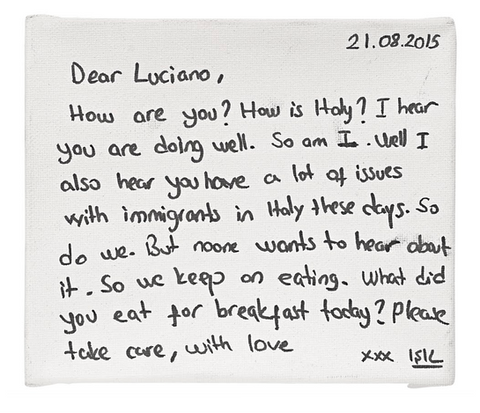 21.08.2015
Dear Luciano,
How are you? How is Italy? I hear
you are doing well. So am I. Well I
also hear you have a lot of issues
with immigrants in Italy these days. So
do we. But noone wants to hear about
it. So we keep on eating. What did
you eat for breakfast today? Please
take care, with love
xxx IŞIL